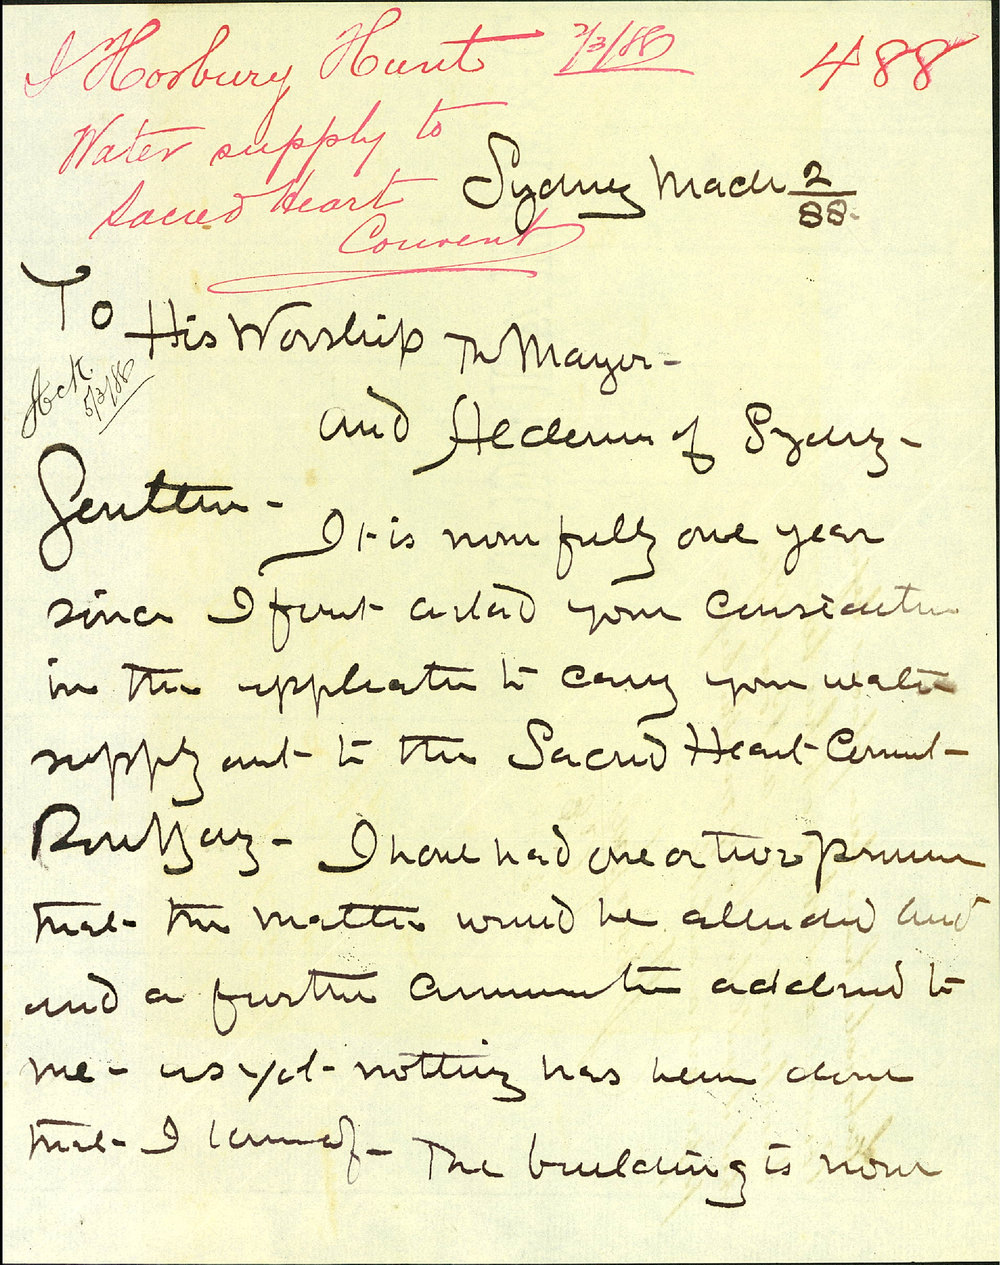 J Horbury Hunt 2/3/88
488
Water supply to
Sacred Heart
Convent
Sydney March 2/88.
To His Worship The Mayor-
Ack.
5/3/88
and Aldermen of Sydney-
Gentlemen-
It is now fully one year
since I first asked your consideration
in the application to carry your water
supply out to the Sacred Heart Convent-
Rose Bay- I have had one or two promises
that the matter would be attended
and a further communication addressed to
me- as yet nothing has been done
that I know of- The building is now